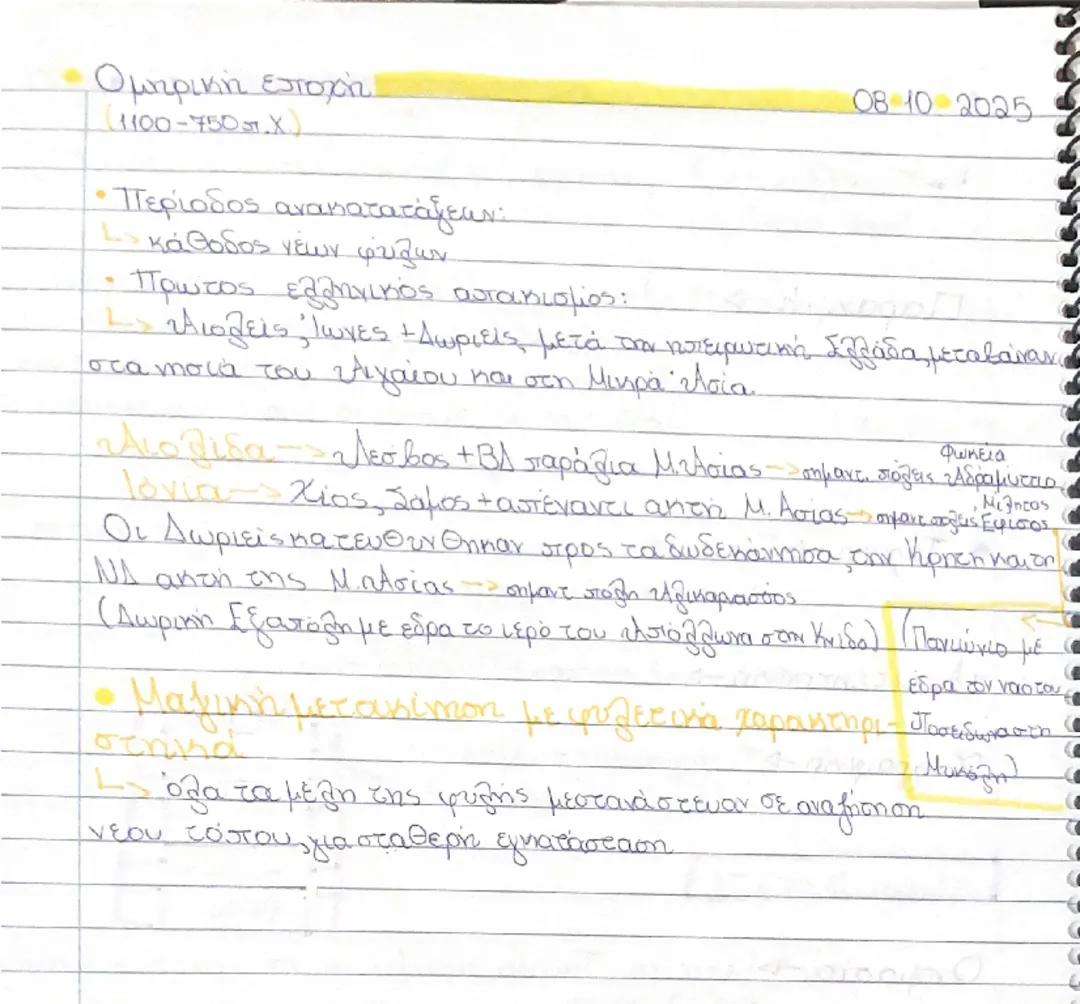 Ομηρική εποχή 08-10-2025
(1100-750 π.Χ.)
• Περίοδος ανακατατάξεων:
↳ κάθοδος νέων φύλων
• Πρώτος ελληνικός αποικισμός:
↳ Αιολείς, Ίωνες + Δωριείς, μετά την ηπειρωτική Ελλάδα, μεταβαίναν
στα νησιά του Αιγαίου και στη Μικρά Ασία.
Αιολίδα → Λέσβος + ΒΔ παράλια Μ. Ασίας → σημαντ. πόλεις Φωκεία Αδραμύττιο
Ιόνια → Χίος, Σάμος + απέναντι ακτή Μ. Ασίας → σημαντ. πόλεις Έφεσος, Μίλητος
Οι Δωριείς κατευθύνθηκαν προς τα δωδεκάνησα, την Κρήτη και τη
ΝΔ ακτή της Μ. Ασίας → σημαντ πόλη Αλικαρνασσός
(Δωρική Εξάπολη με έδρα το ιερό του Απόλλωνα στην Κνίδο)
(Πανιώνιο με
έδρα τον ναό του
Ποσειδώνα στη
Μυκάλη)
• Μαζική μετακίνηση με φυλετικά χαρακτηρι-
στηκά
↳ όλα τα μέλη της φυλής μεστανάστευαν σε αναζήτηση
νέου τόπου, για σταθερή εγκατάσταση